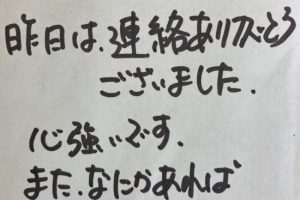 昨日は、連絡ありがとう
ございました.
心強いです.
また、なにかあれば